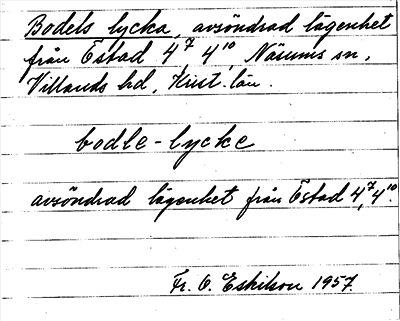 Bodels lycka, avsöndrad lägenhet
från Östad 4⁷, 4¹⁰, Näsums sn,
Villands hd, Krist. län.
bodle-lycke
avsöndrad lägenhet från Östad 4⁷, 4¹⁰.
Fr. O. Eskilson 1957.